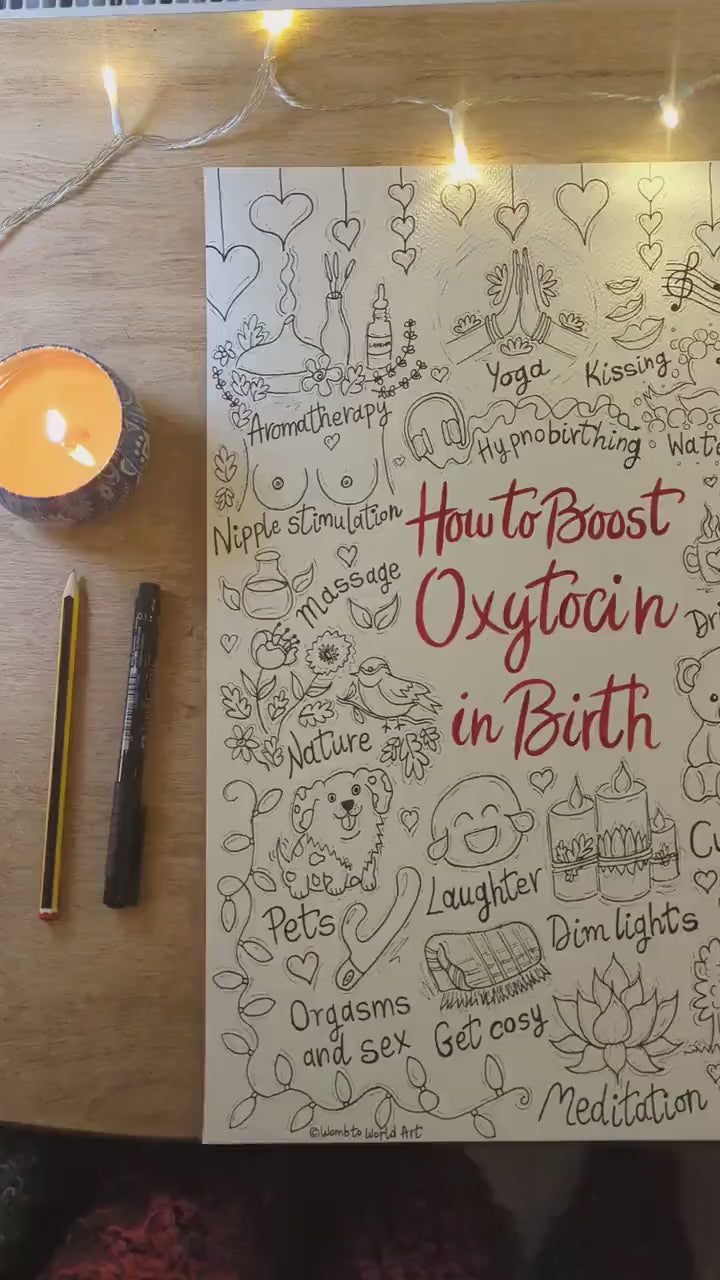 Yoga
Kissing
Aromatherapy
Hypnobirthing
Wat
Nipple stimulation
How to Boost
Oxytocin
in Birth
Massage
Dr
Nature
Pets
Laughter
Cu
Dim lights
Orgasms
and sex
Get cosy
Meditation
©Womb to World Art